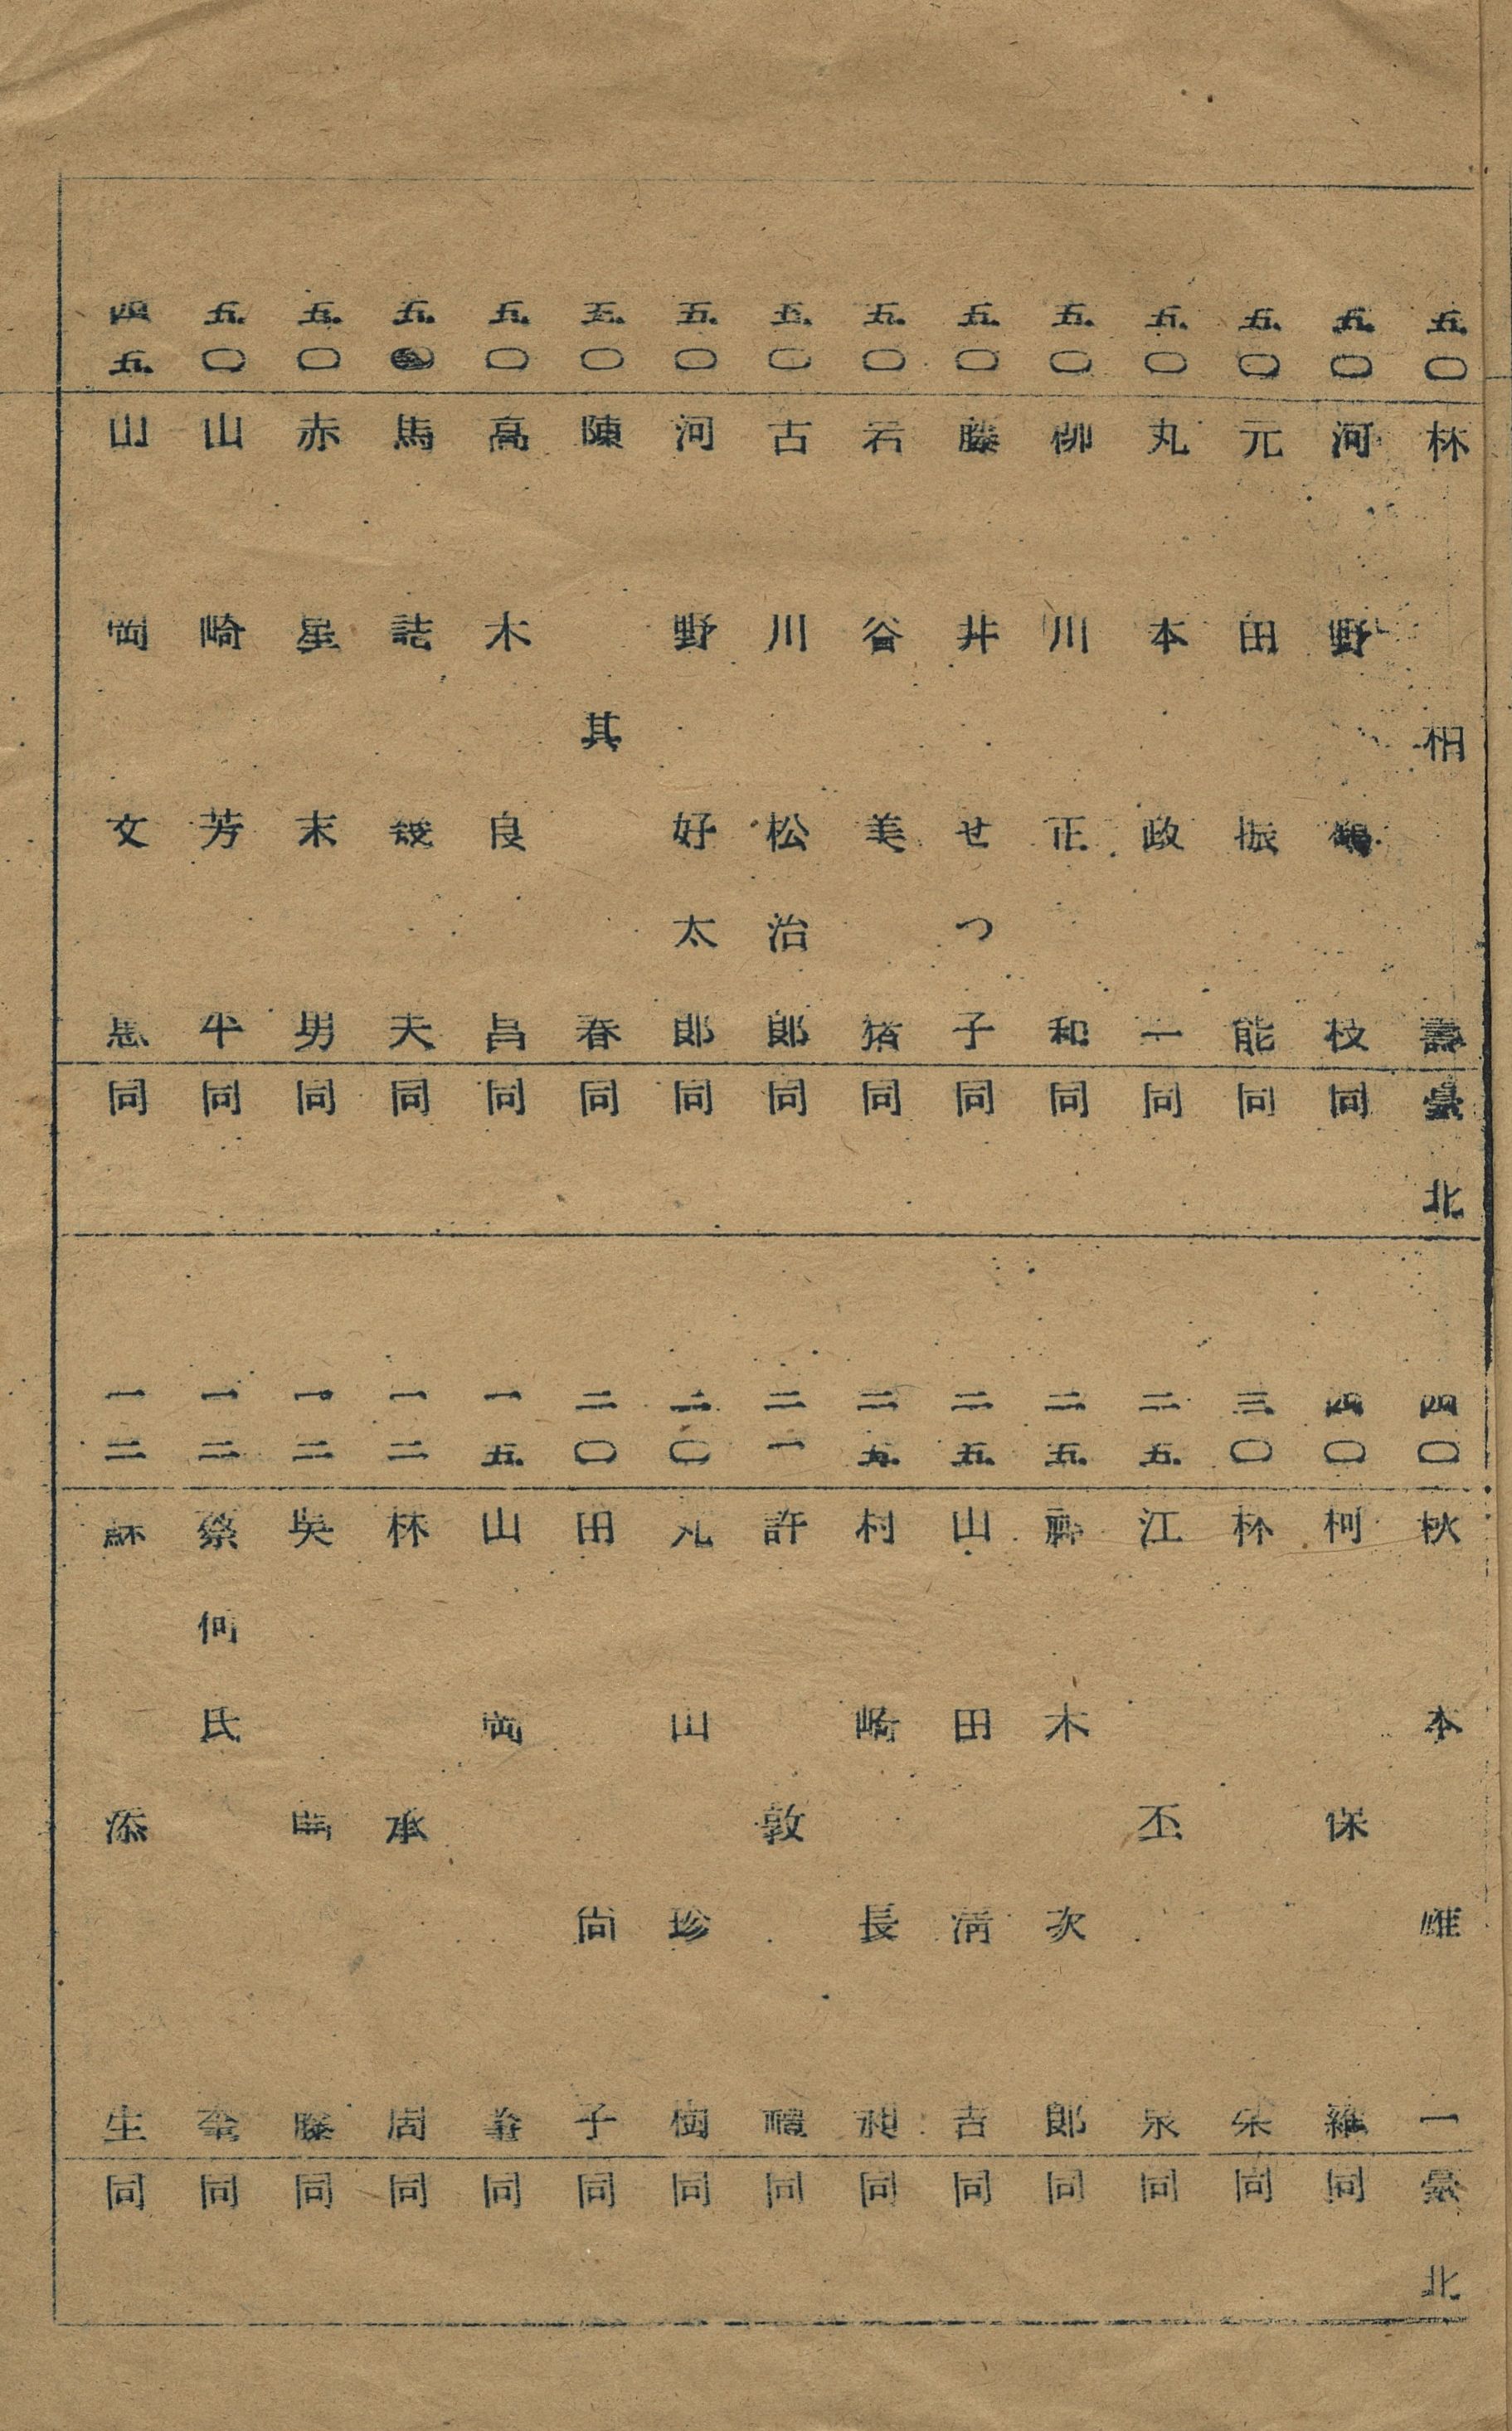 五〇 林相壽 臺北
五〇 河野鶴枝 同
五〇 元田振能 同
五〇 丸本政一 同
五〇 柳川正和 同
五〇 藤井せつ子 同
五〇 若谷美猪 同
五〇 古川松治郎 同
五〇 河野好太郎 同
五〇 陳其春 同
五〇 高木良昌 同
五〇 馬詰幾夫 同
五〇 赤星末男 同
五〇 山崎芳平 同
四五 山岡文 同
四〇 秋本雄一 臺北
四〇 柯保羅 同
三〇 林 同
二五 江丕泉 同
二五 木次郎 同
二五 山田淸吉 同
二五 村崎長昶 同
二一 許敦禮 同
二〇 丸山珍樹 同
二〇 田尙子 同
一五 山岡 同
一二 林承周 同
一二 吳 同
一二 蔡何氏 同
一二 蘇添生 同